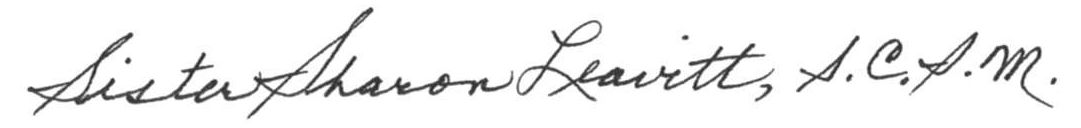 Sister Sharon Leavitt, S.C.S.M.